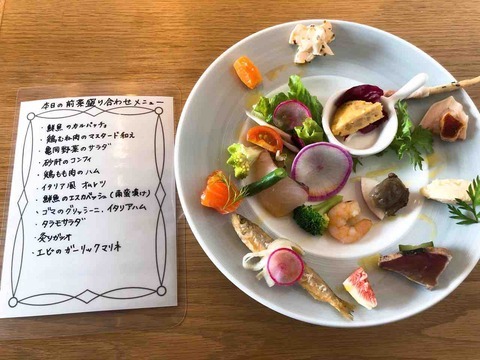 本日の前菜盛り合わせメニュー
・鮮魚のカルパッチョ
・鶏むね肉のマスタード和え
・亀岡野菜のサラダ
・砂肝のコンフィ
・鶏もも肉のハム
・イタリア風 オムレツ
・鮮魚のエスカベッシュ(南蛮漬け)
・ゴマのグリッシーニ、イタリアハム
・タラモサラダ
・炙りガツオ
・エビのガーリックマリネ